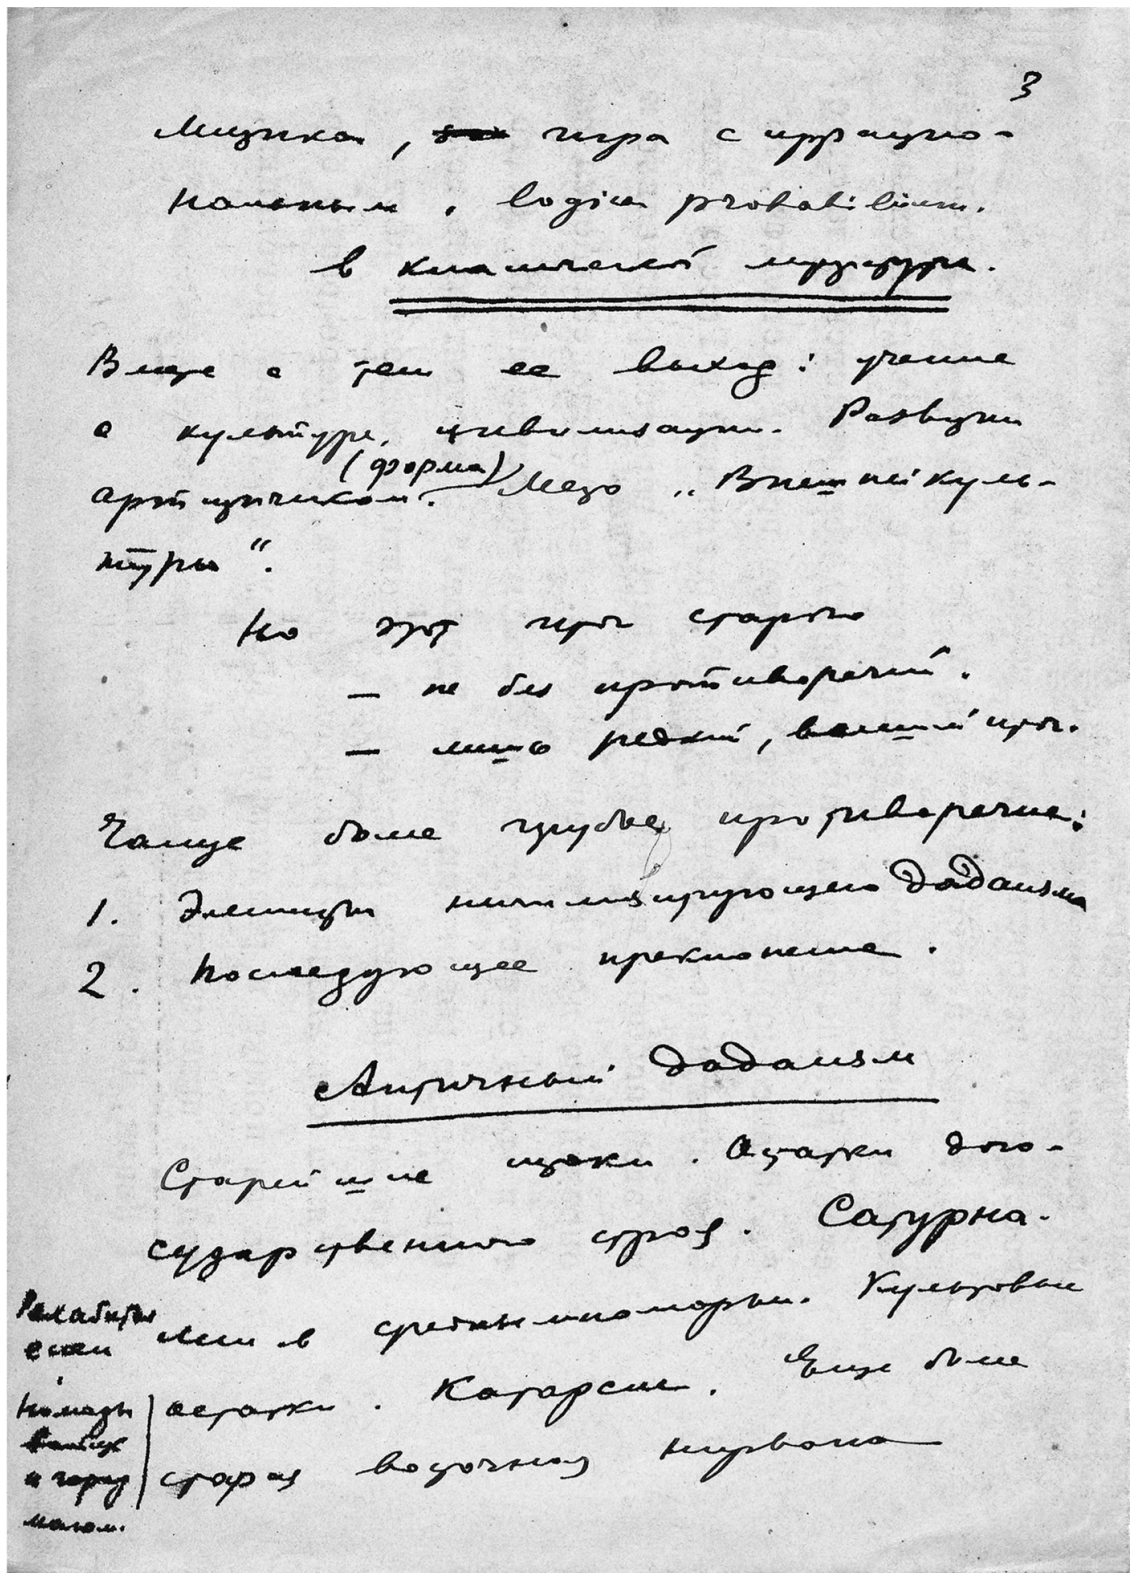 3
Музыка, игра с иррацио-
нальным. logica probabilium.
в классической
Вместе с тем ее выход: учение
о культуре, цивилизации. Развузи
(форма)
"Внешней куль-
туры".
Но этот итог старого
— не без противоречий.
— лишь редкий, высший итог.
Чаще более грубые противоречие:
1. Элементы нигилизирующего дадаизма
2. Последующее преклонение.
Античный дадаизм
Старейшие истоки. Остатки дого-
сударственного строя. Сатурна-
лии в средиземноморьи. Культовые
остатки. Катарсис. Еще более
старая восточная нирвана
Рехабиты
есеи
Номады
и город